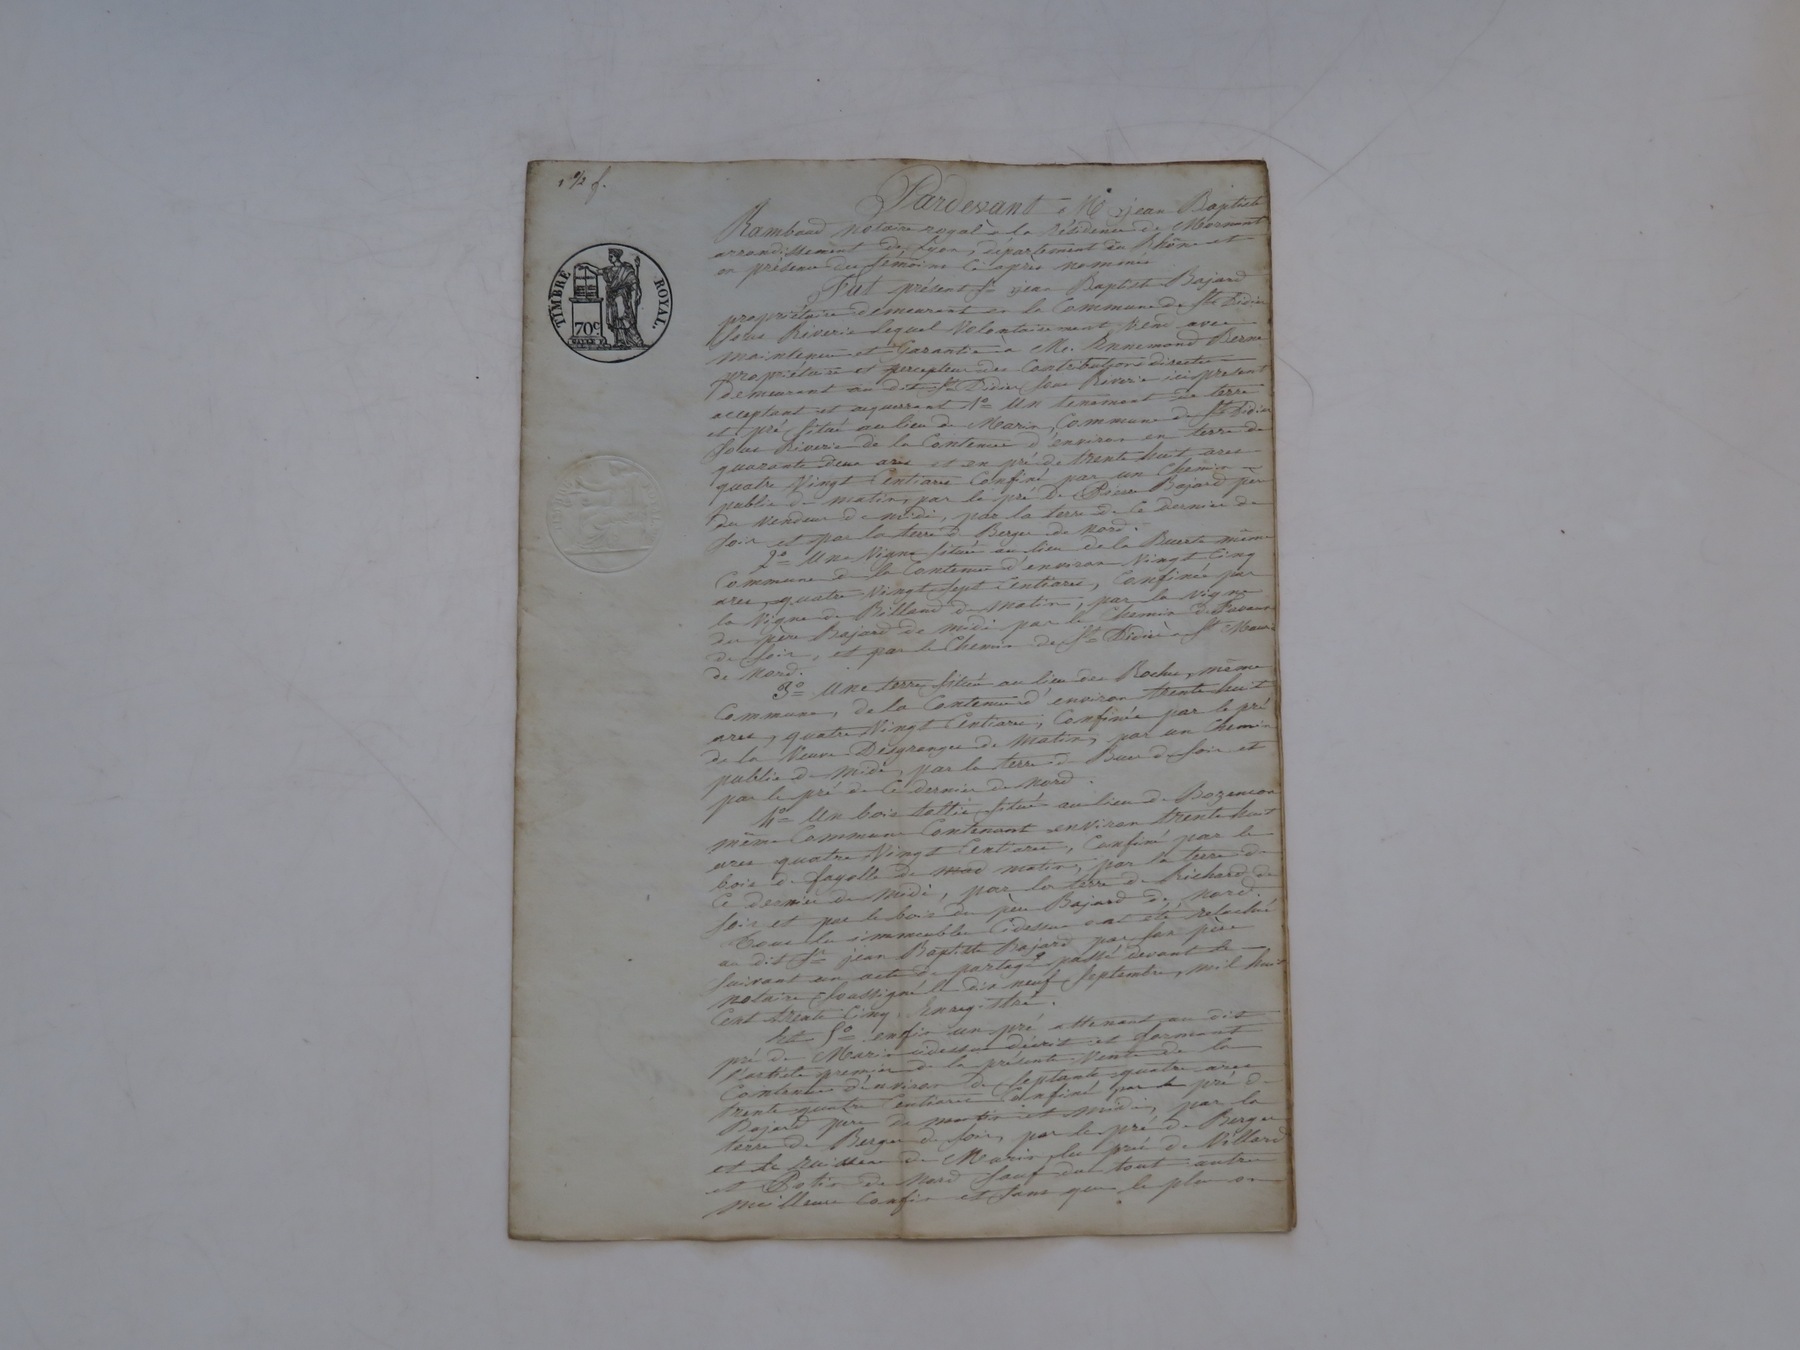 1 1/2 f.
TIMBRE ROYAL.
70c.
Pardevant Me jean Baptiste
Rambaud notaire royal à la résidence de Mornant
arrondissement de Lyon, département du Rhône et
en présence des témoins ci après nommés
Fut présent Sr jean Baptiste Bajard
propriétaire demeurant en la Commune de St Didier
Sous Riverie lequel Volontairement vend avec
maintenue et Garantie à Mr. Ennemond Berne
propriétaire et percepteur des Contributions directes
demeurant au dit St Didier Sous Riverie ici présent
acceptant et acquerrant 1o Un tenement de terre
et pré Situé au lieu de Marin, Commune de St Didier
Sous Riverie de la Contenue d'environ en terre de
quarante deux ares et en pré de trente huit ares
quatre Vingt Centiares Confiné par un Chemin
public de matin, par le pré de Pierre Bajard père
du Vendeur de midi, par la terre de Ce dernier de
Soir et par la terre de Berger de nord.
2o Une Vigne Située au lieu de la même
Commune de la Contenue d'environ Vingt Cinq
ares, quatre Vingt Sept Centiares, Confinée par
la Vigne de Billaud de matin, par la Vigne
du père Bajard de midi par le Chemin de
de Soir, et par le Chemin de St Didier à St
de nord.
3o Une terre Située au lieu des Roches, même
Commune, de la Contenue d'environ trente huit
ares, quatre Vingt Centiares, Confinée par le pré
de la Veuve Desgranges de matin, par un Chemin
public de midi, par la terre de de Soir et
par le pré de Ce dernier de nord.
4o Un bois Situé au lieu de
même Commune Contenant environ trente huit
ares quatre Vingt Centiares, Confiné par le
bois de fayolle de matin, par la terre de
Ce dernier de midi, par la terre de Richard de
Soir et par le bois du père Bajard de nord.
Tous les immeubles Cidessus ont été relachés
au dit Sr jean Baptiste Bajard par Son père
Suivant un acte de partage passé devant le
notaire Soussigné le dix neuf Septembre, mil huit
Cent trente Cinq, Enregistré.
Et 5o enfin un pré attenant au dit
pré de Marin cidessus décrit et formant
l'article premier de la présente Vente de la
Contenue d'environ de Septante quatre ares
trente quatre Centiares Confiné par le pré de
Bajard père de matin et midi, par la
terre de Berger de Soir, par le pré de Berger
et le ruisseau de Marin, les prés de Villard
et de Nord Sauf du tout autres
meilleurs Confins et Sans que le plus ou